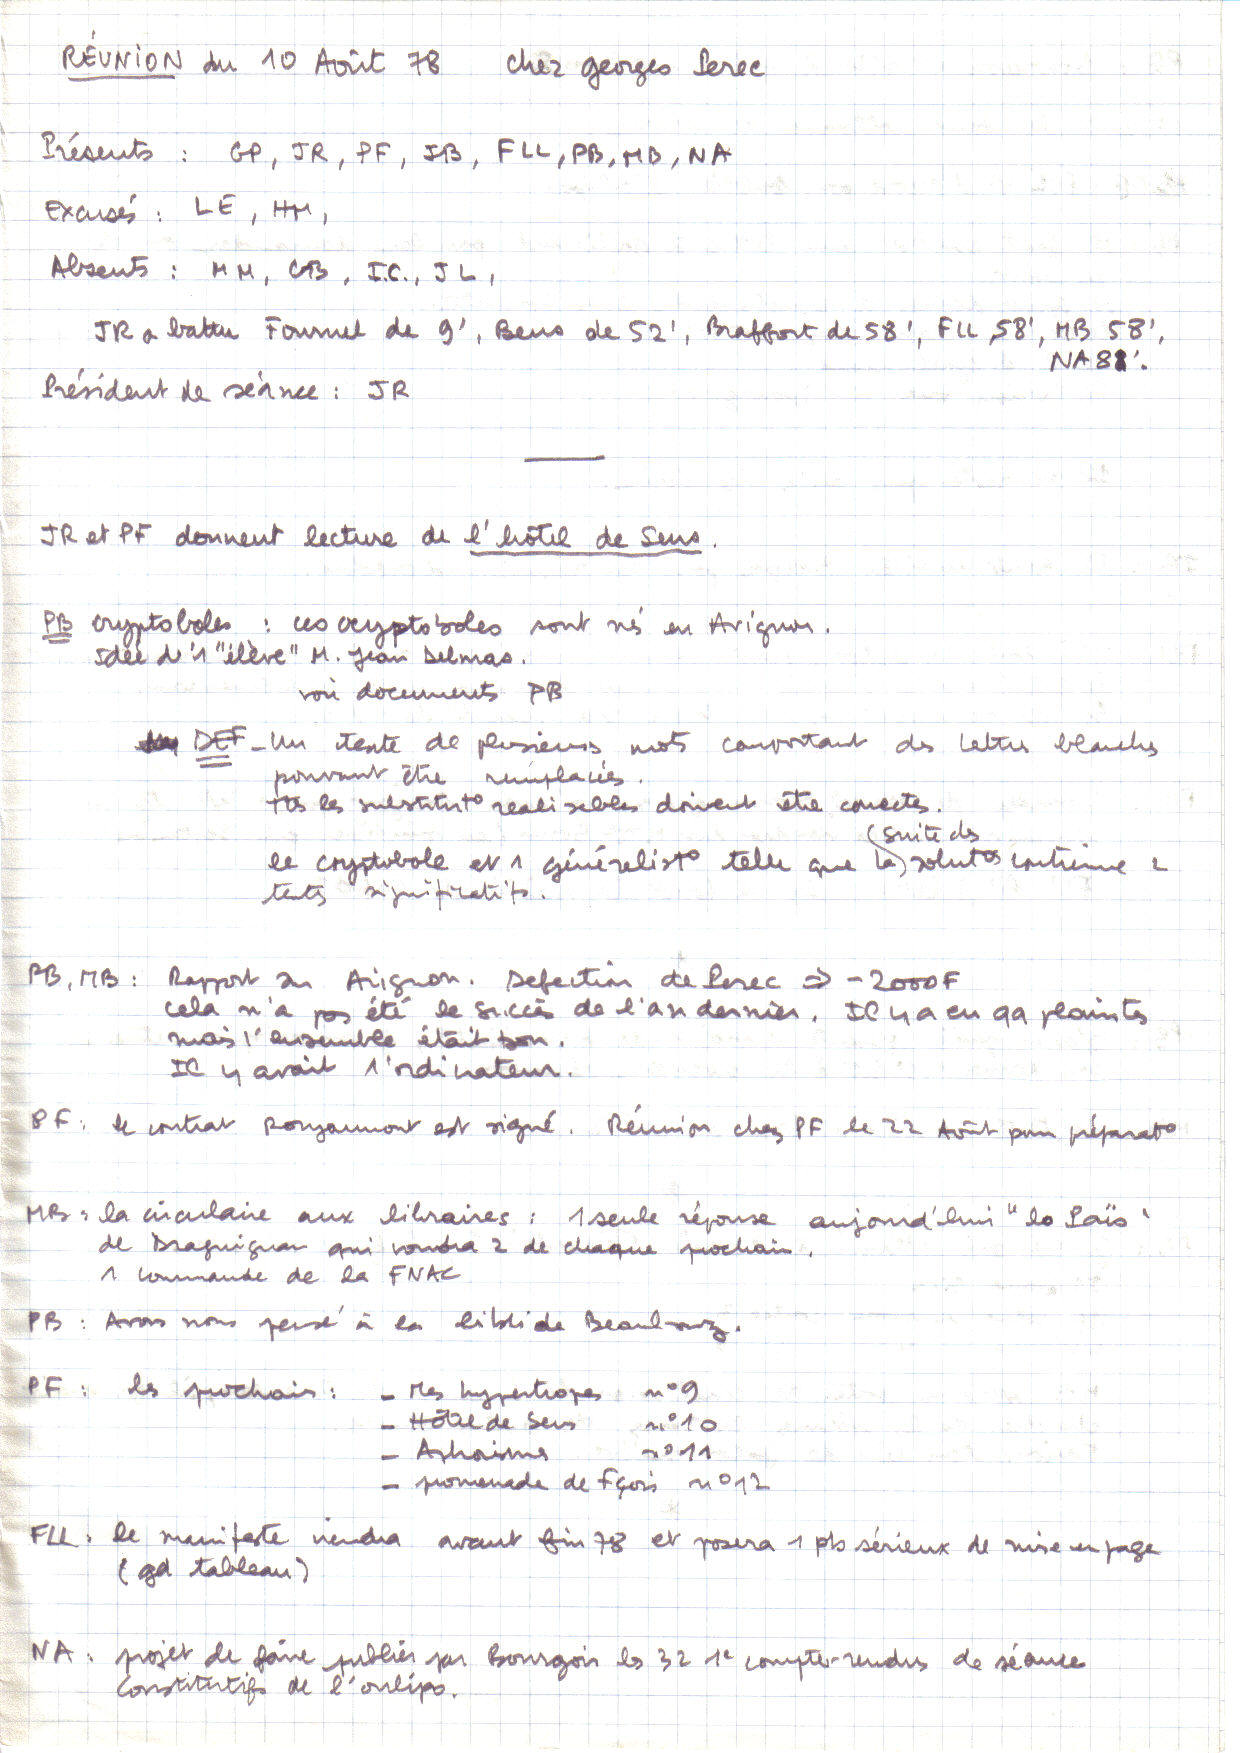 RÉUNION du 10 Août 78 chez georges Perec
Présents : GP, JR, PF, JB, FLL, PB, MB, NA
Excusés : LE, HM,
Absents : MM, CB, I.C., JL,
JR a battu Fournel de 9', Bens de 52', Braffort de 58', FLL 58', MB 58',
NA 81'.
Président de séance : JR
JR et PF donnent lecture de l'hôtel de Sens.
PB cryptoboles : ces cryptoboles sont nés en Avignon.
Idée d'1 "élève" M. Jean Delmas.
voir documents PB
DEF - Un texte de plusieurs mots comportant des lettres blanches
pouvant être remplacées.
tts les substitut° realisables doivent être correctes.
le cryptobole est 1 générelist° telle que la (suite des
solut°s contienne 2
textes significatifs.
PB, MB : Rapport sur Avignon. Defection de Perec => - 2000F
cela n'a pas été le succès de l'an dernier. Il y a eu qq plaintes
mais l'ensemble était bon.
IC y avait l'ordinateur.
PF : le contrat Royaumont est signé. Réunion chez PF le 22 Août pour préparat°
MB : la circulaire aux libraires : 1 seule réponse aujourd'hui "lo Païs"
de Draguignan qui voudra 2 de chaque prochain.
1 commande de la FNAC
PB : Avons nous pensé à la bibli de Beaubourg.
PF : les prochains : - Mes hypertropes n°9
- Hôtel de Sens n°10
- n°11
- promenade de Fçois n°12
FLL : le manifeste viendra avant fin 78 et posera 1 pb sérieux de mise en page
(gd tableau)
NA : projet de faire publier par Bourgois les 32 1e compte-rendus de séance
Constitutifs de l'oulipo.